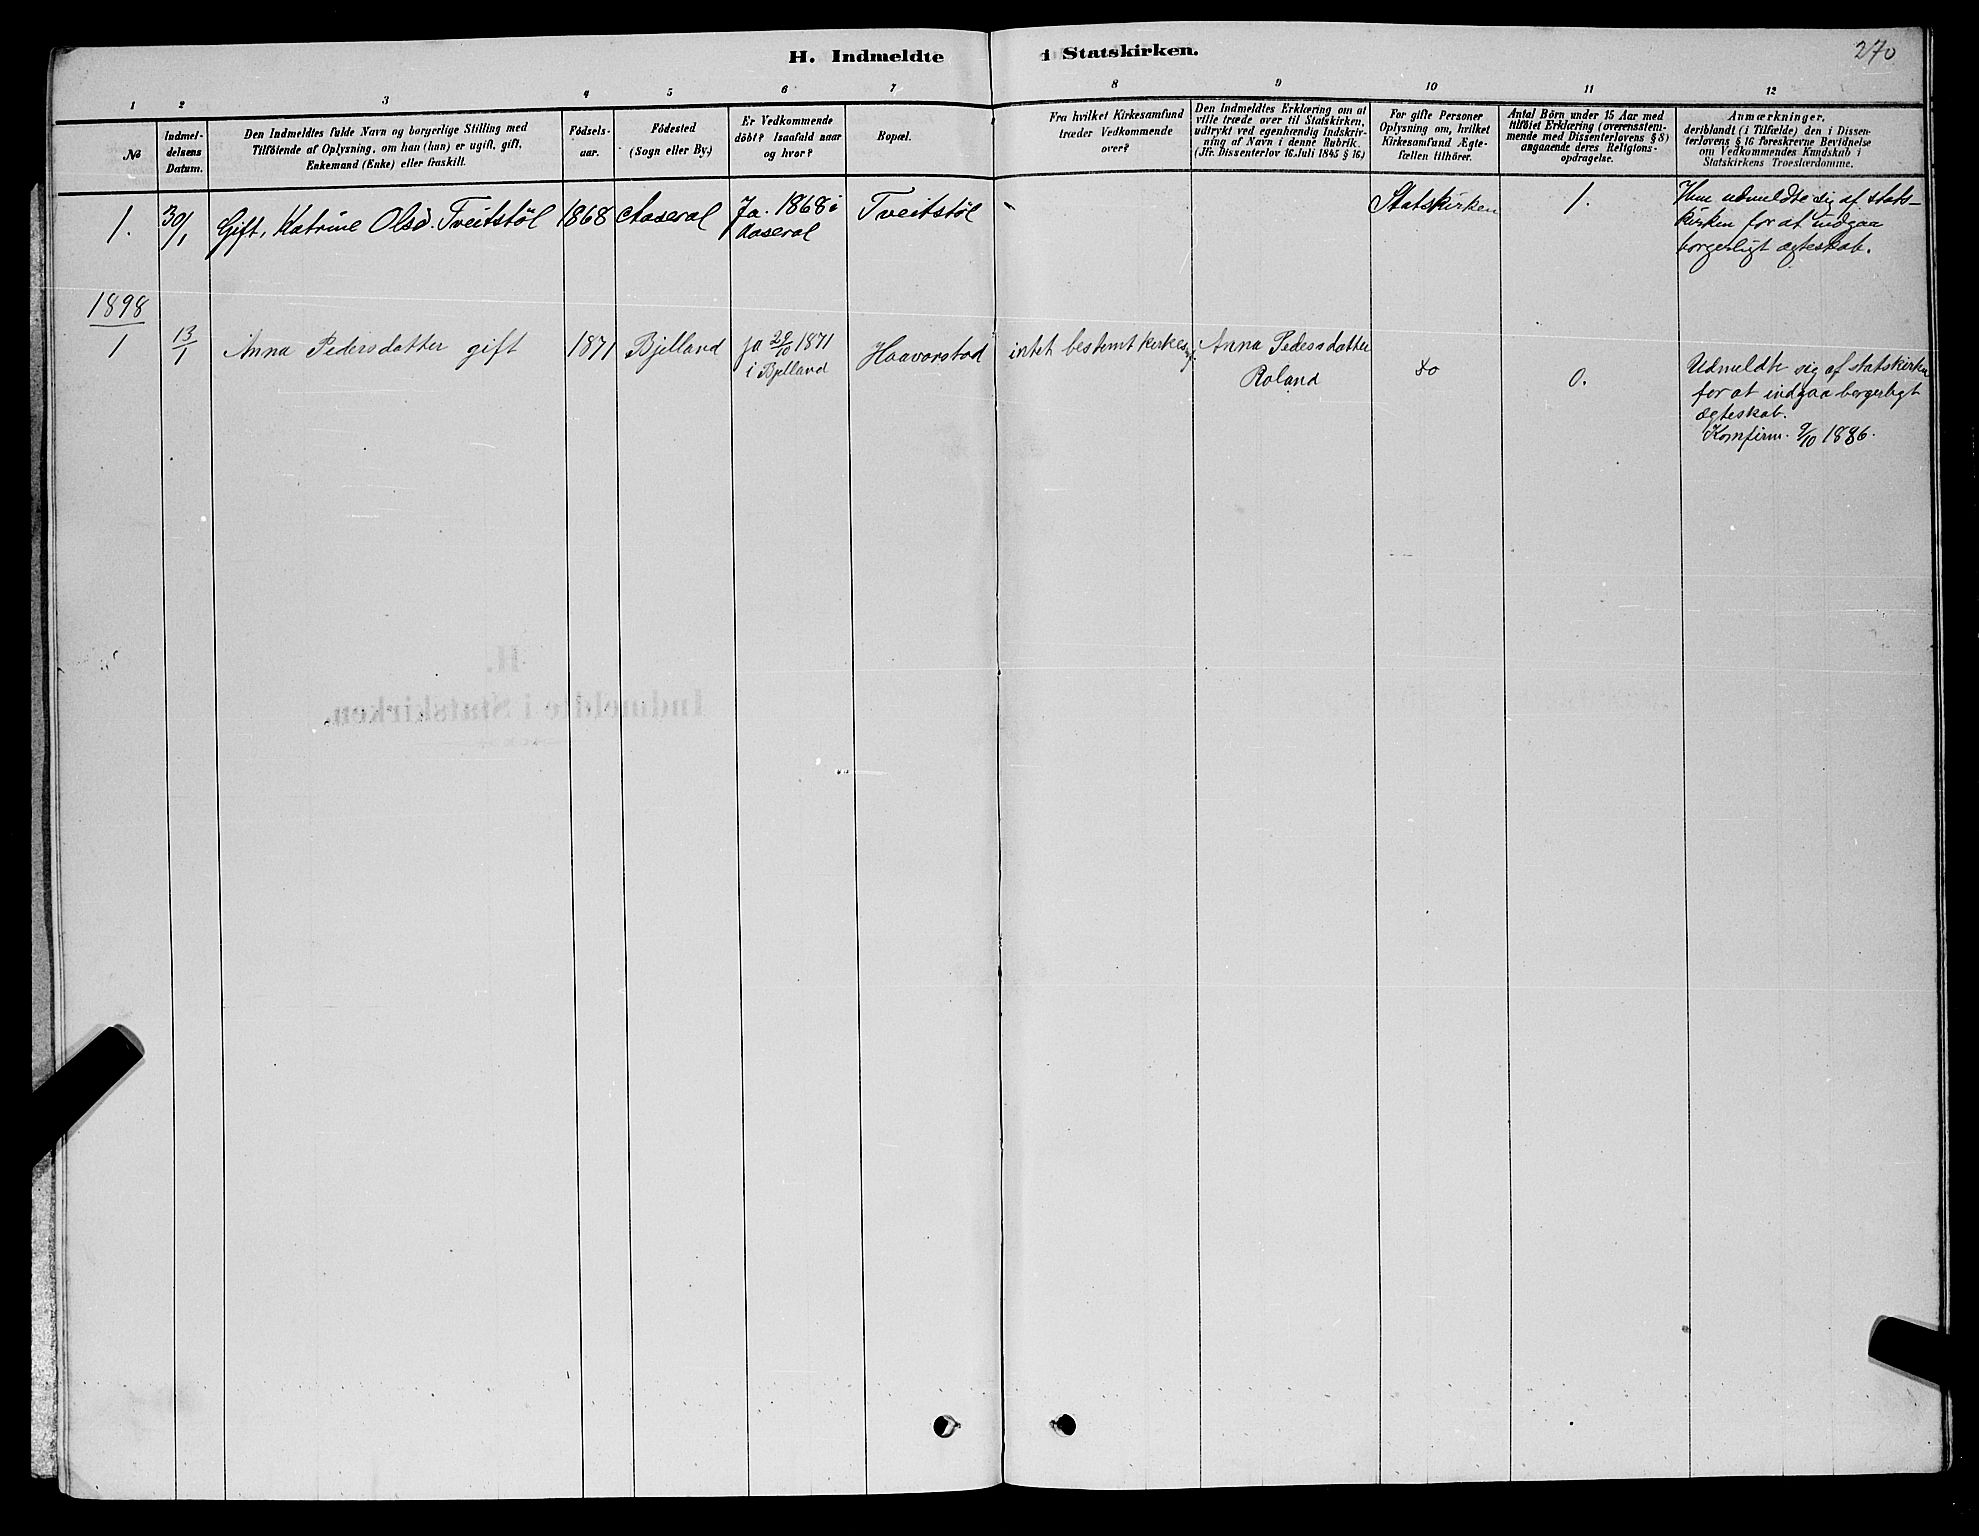 H. Indmeldte i Statskirken.
270
1 2 3 4 5 6 7 8 9 10 11 12
No
Indmel-
delsens
Datum.
Den Indmeldtes fulde Navn og borgerlige Stilling med
Tilföiende af Oplysning, om han (hun) er ugift, gift,
Enkemand (Enke) eller fraskilt.
Födsels-
aar.
Födested
(Sogn eller By.)
Er Vedkommende
döbt? Isaafald naar
og hvor?
Bopæl.
Fra hvilket Kirkesamfund
træder Vedkommende
over?
Den Indmeldtes Erklæring om at
ville træde over til Statskirken,
udtrykt ved egenhændig Indskriv-
ning af Navn i denne Rubrik.
(Jfr. Dissenterlov 16. Juli 1845 § 16.)
For gifte Personer
Oplysning om, hvilket
Kirkesamfund Ægte-
fællen tilhörer.
Antal Börn under 15 Aar med
tilföiet Erklæring (overensstem-
mende med Dissenterlovens § 8)
angaaende deres Religions-
opdragelse.
Anmærkninger,
deriblandt (i Tilfælde) den i Dissen-
terlovens § 16 foreskrevne Bevidnelse
om Vedkommendes Kundskab i
Statskirkens Troeslærdomme.
1. 30/1 Gift, Katrine Olsd. Tveitstöl 1868 Aaseral Ja. 1868 i
Aaseral
Tveitstöl
Statskirken
1.
Hun udmeldte sig af stats-
kirken for at indgaa
borgerligt ægteskab.
1898
1 13/1 Anna Pedersdatter gift 1871 Bjelland ja 29/10 1871
i Bjelland
Haavorstad
intet bestemt kirkes.
Anna Pedersdatter
Roland
do
0.
Udmeldte sig af statskirken
for at indgaa borgerligt
ægteskab.
Konfirm. 9/10 1886.
H.
Indmeldte i Statskirken.